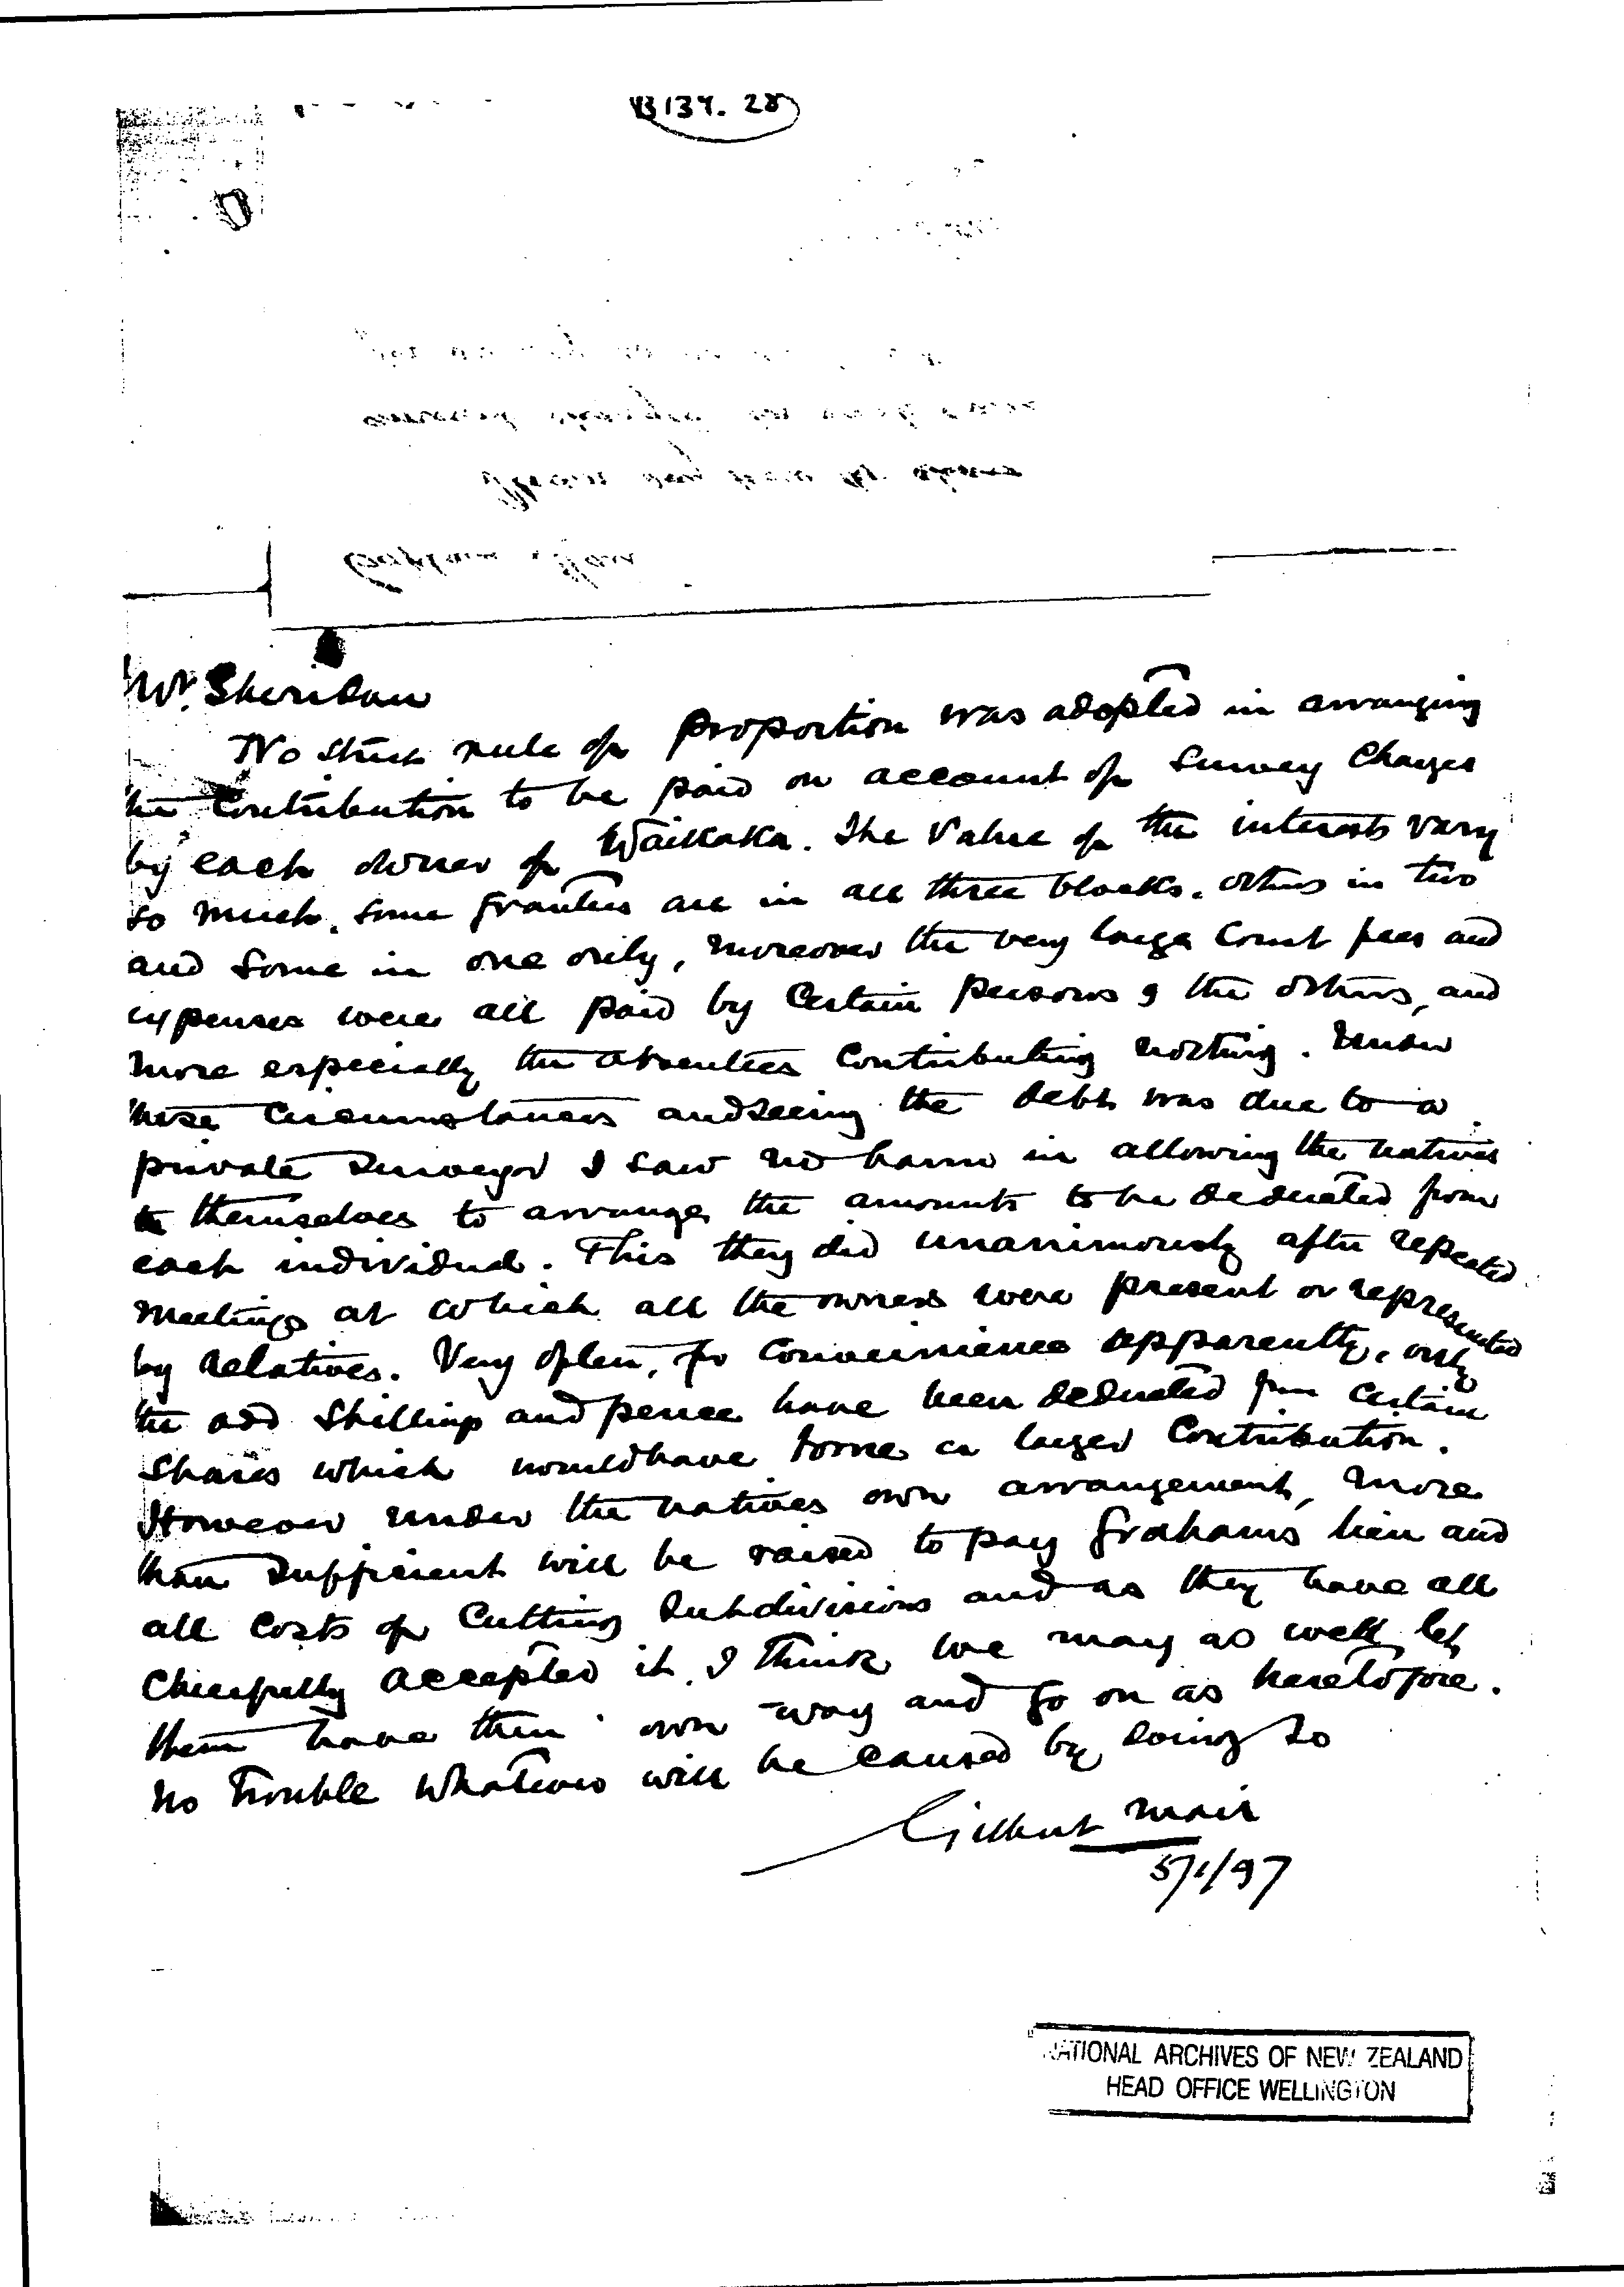 B 134. 28
Mr. Sheridan
No strict rule of proportion was adopted in arranging
the Contribution to be paid on account of Survey Charges
by each owner of Waikaka. The Value of the interests vary
so much. Some Grantees are in all three blocks. others in two
and Some in one only, moreover the very large Court fees and
expenses were all paid by Certain persons & the others, and
more especially the absentees Contributing nothing. Under
these Circumstances and seeing the debt was due to a
private Surveyor I saw no harm in allowing the natives
themselves to arrange the amounts to be deducted from
each individual. This they did unanimously after repeated
meetings at which all the owners were present or represented
by relatives. Very often, for Convenience apparently, only
the odd Shillings and pence have been deducted from Certain
Shares which would have borne a larger Contribution.
However under the natives own arrangement, more
than Sufficient will be raised to pay Grahams lien and
all Costs of Cutting Subdivisions and as they have all
Cheerfully accepted it I think we may as well let
them have their own way and go on as heretofore.
No trouble whatever will be caused by doing so
Gilbert Mair
5/1/97
NATIONAL ARCHIVES OF NEW ZEALAND
HEAD OFFICE WELLINGTON